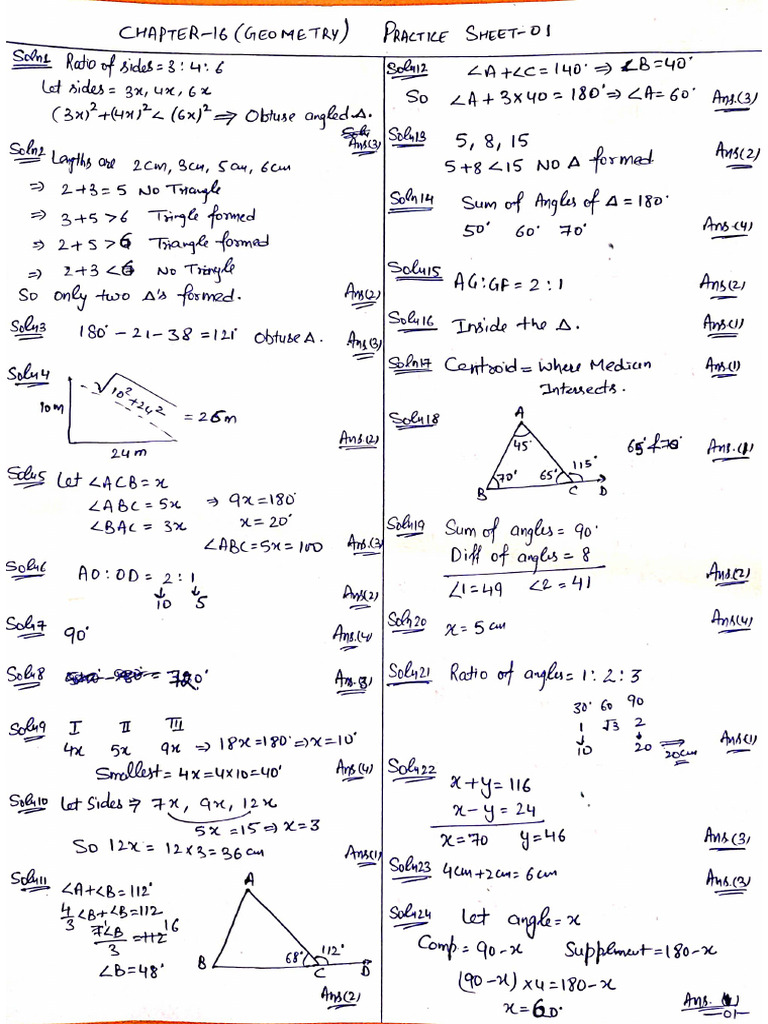 CHAPTER-16 (GEOMETRY) PRACTICE SHEET-01
Soln1 Ratio of sides = 3 : 4 : 6
Let sides = 3x, 4x, 6x
(3x)² + (4x)² < (6x)² ⇒ Obtuse angled Δ.
Ans(3)
Soln2 Lengths are 2cm, 3cm, 5cm, 6cm
⇒ 2+3 = 5 No Triangle
⇒ 3+5 > 6 Tringle formed
⇒ 2+5 > 6 Triangle formed
⇒ 2+3 < 6 No Tringle
So only two Δ's formed. Ans(2)
Soln3 180° - 21 - 38 = 121° Obtuse Δ. Ans(3)
Soln4
10m
√10²+24²
= 26m
24m
Ans(2)
Soln5 Let ∠ACB = x
∠ABC = 5x ⇒ 9x = 180°
∠BAC = 3x x = 20°
∠ABC = 5x = 100 Ans(3)
Soln6 AO : OD = 2 : 1
↓ ↓
10 5
Ans(2)
Soln7 90° Ans.(4)
Soln8 = 720° Ans.(3)
Soln9 I II III
4x 5x 9x ⇒ 18x = 180° ⇒ x = 10°
Smallest = 4x = 4×10 = 40° Ans(4)
Soln10 Let Sides ⇒ 7x, 9x, 12x
5x = 15 ⇒ x = 3
So 12x = 12×3 = 36cm Ans(1)
Soln11 ∠A+∠B = 112°
4/3 ∠B + ∠B = 112
7∠B/3 = 112 16
∠B = 48°
A
68° 112°
B C D
Ans(2)
Soln12 ∠A + ∠C = 140° ⇒ ∠B = 40°
So ∠A + 3×40 = 180° ⇒ ∠A = 60° Ans(3)
Soln13 5, 8, 15
5+8 < 15 NO Δ formed Ans(2)
Soln14 Sum of Angles of Δ = 180°
50° 60° 70° Ans.(4)
Soln15 AG : GF = 2 : 1 Ans(2)
Soln16 Inside the Δ. Ans(1)
Soln17 Centroid = Where Median Ans(1)
Intersects.
Soln18
A
45°
70° 65° 115°
B C D
65° 70° Ans.(1)
Soln19 Sum of angles = 90°
Diff of angles = 8
∠1 = 49 ∠2 = 41 Ans(2)
Soln20 x = 5 cm Ans(4)
Soln21 Ratio of angles = 1 : 2 : 3
30° 60 90
1 √3 2
↓ ↓
10 20 ⇒ 20cm
Ans(1)
Soln22
x + y = 116
x - y = 24
x = 70 y = 46 Ans(3)
Soln23 4cm + 2cm = 6cm Ans.(3)
Soln24 Let angle = x
Comp. = 90 - x Supplment = 180 - x
(90 - x) × 4 = 180 - x
x = 60° Ans.
-01-